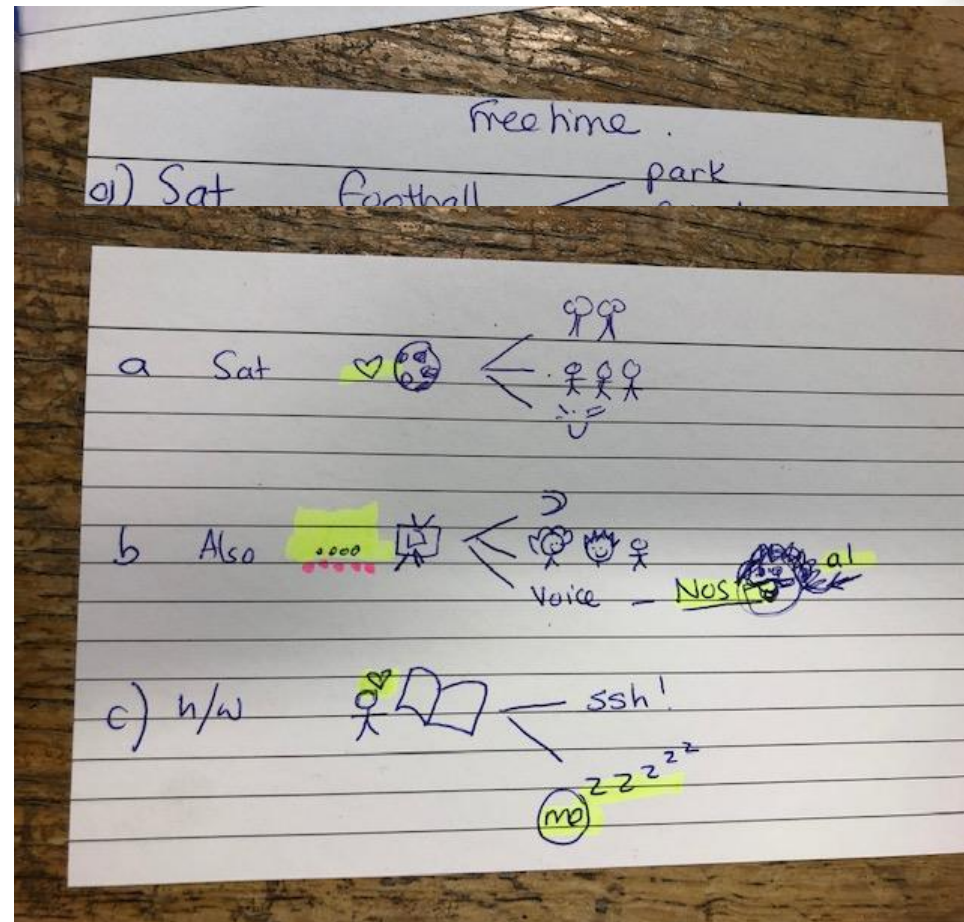 Free time.
a) Sat football park
a Sat
b Also
Voice - Nos al
c) h/w ssh!
mo zzzzz